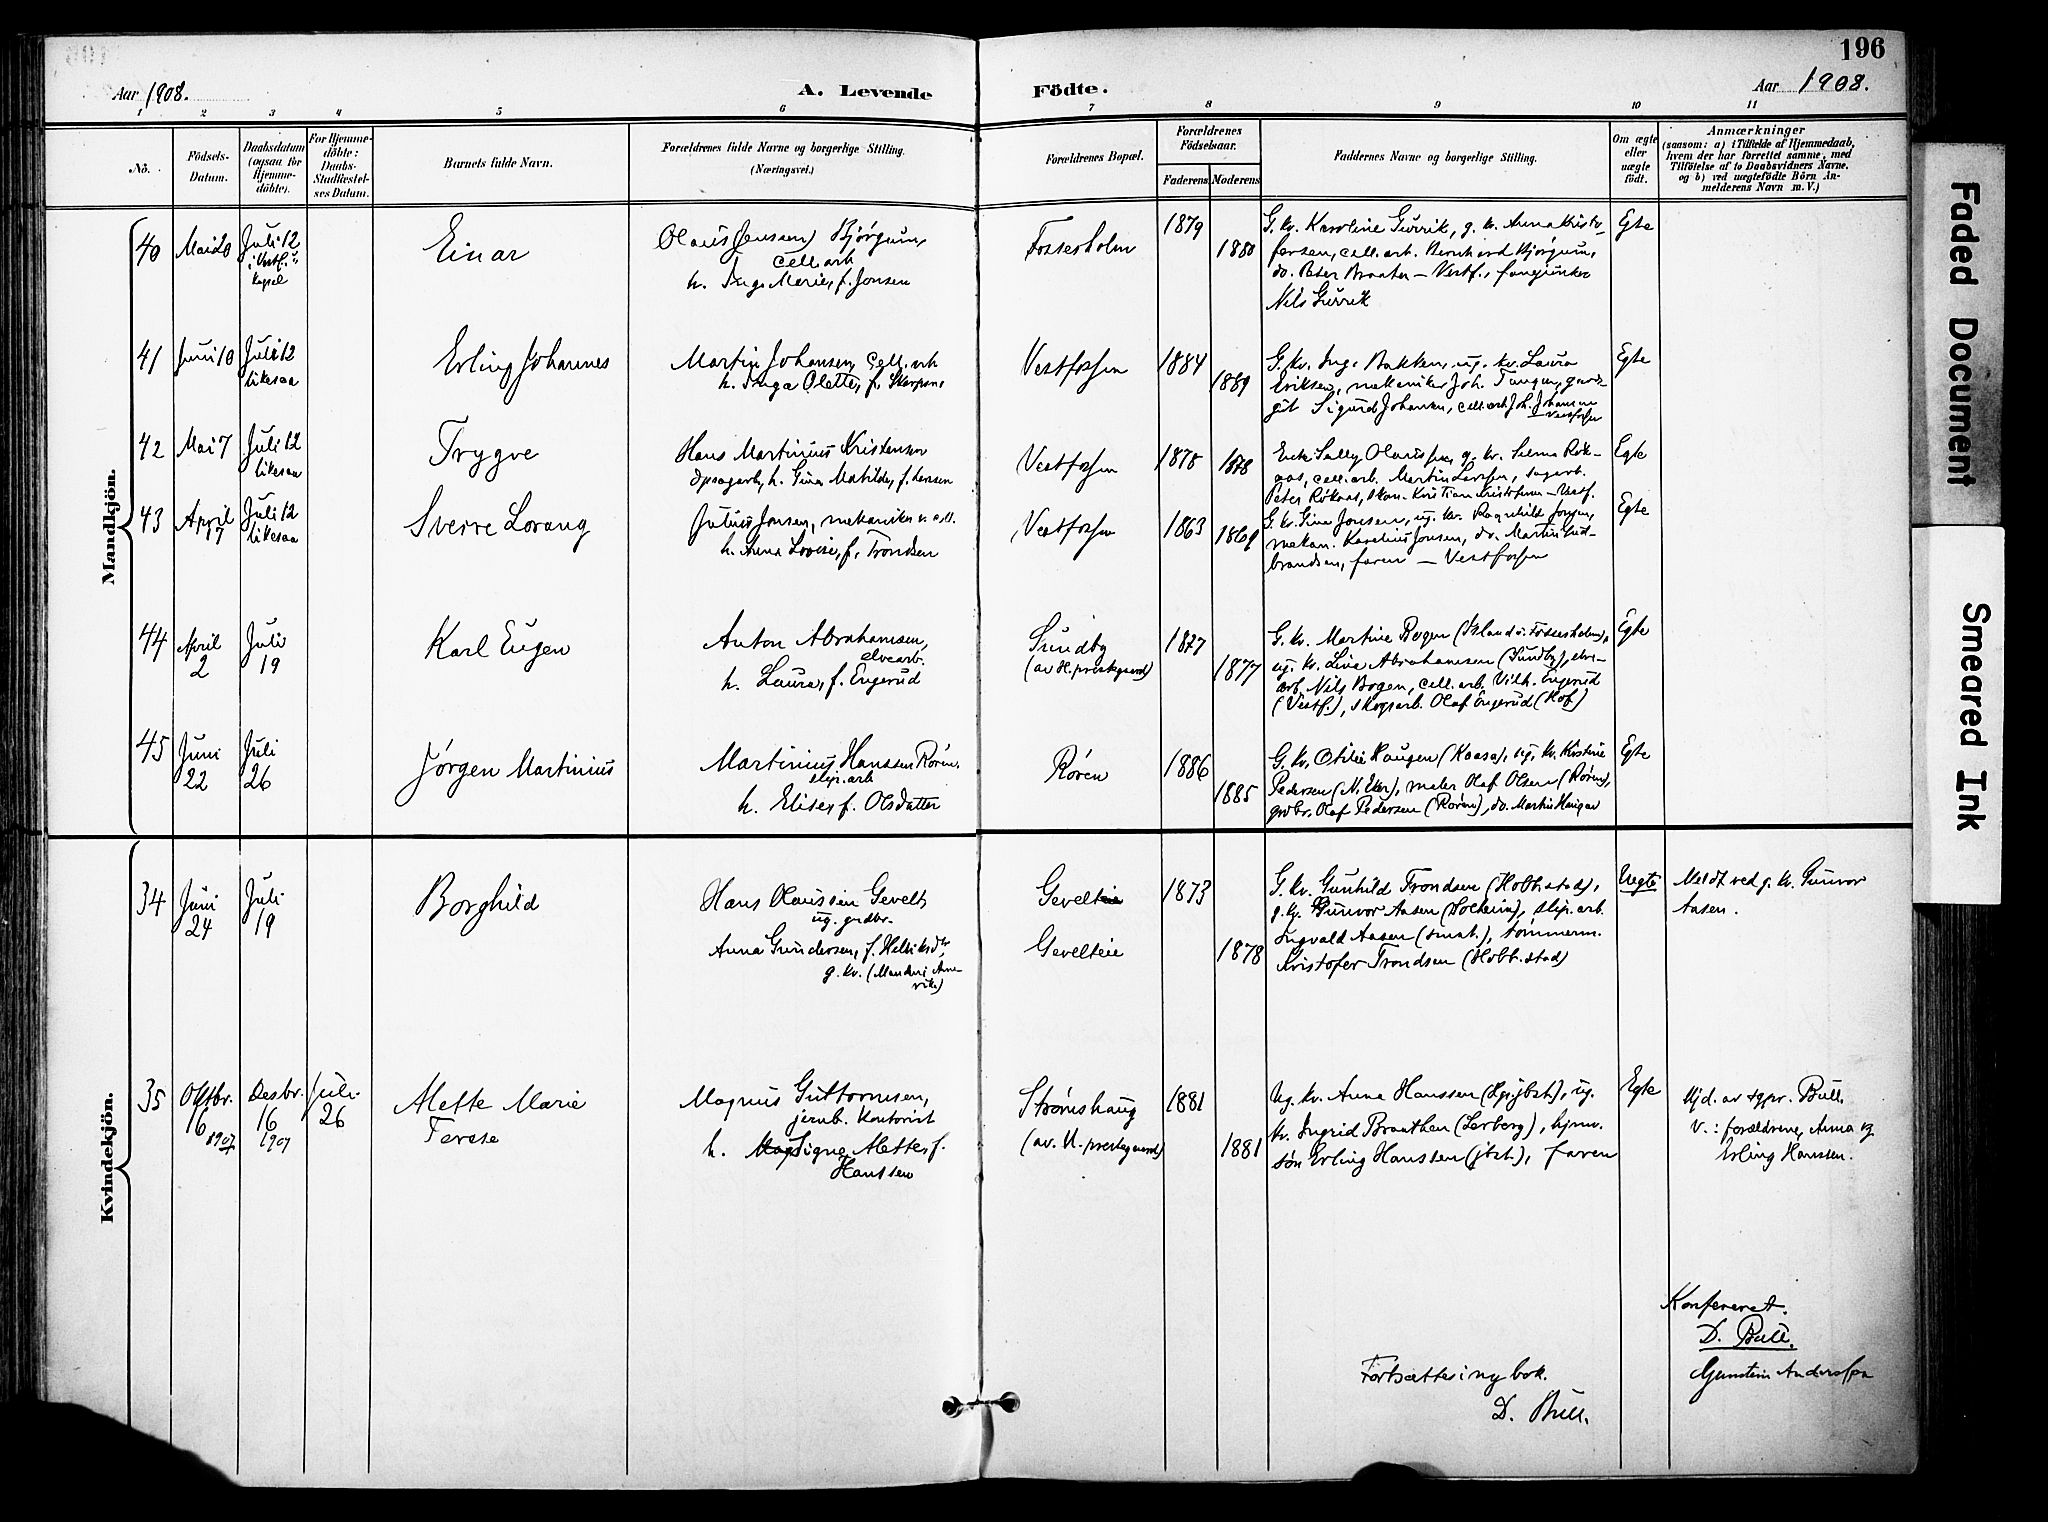 196
Aar 1908.
A. Levende Födte.
Aar 1908.
1 2 3 4 5 6 7 8 9 10 11
No.
Födsels-
Datum.
Daabsdatum
(ogsaa for
Hjemme-
döbte).
For Hjemme-
döbte:
Daabs-
Stadfæstel-
ses Datum.
Barnets fulde Navn.
Forældrenes fulde Navne og borgerlige Stilling.
(Næringsvei.)
Forældrenes Bopæl.
Forældrenes
Födselsaar.
Faderens. Moderens.
Faddernes Navne og borgerlige Stilling.
Om ægte
eller
uægte
födt.
Anmærkninger
(saasom: a) i Tilfælde af Hjemmedaab,
hvem der har forrettet samme, med
Tilföielse af to Daabsvidners Navne.
og b) ved uægtefödte Börn An-
melderens Navn m. V.)
Mandkjön.
40 Mai 20 Juli 12
i Vestf.
kapel
Einar
Olaus (Jensen) Bjørgum,
cell.arb
h. Inga Marie, f. Jonsen
Fossesholm
1879
1880
G. kv. Karoline Gurrik, g. kv. Anna Kristo-
fersen, cell. arb. Bernhard Bjørgum,
do. Peter Braaten – Vestf.,
Nils Gurrik
Egte
41 Juni 10 Juli 12
likesaa
Erling Johannes
Martin Johansen, cell.arb
h. Inga Olette, f.
Vestfossen
1884
1889
G. kv. Inga Bakken, ug. kv. Laura
Eriksen, mekaniker Joh. Tangen,
gut Sigurd Johansen, cell.arb Joh. Johansen
Vestfossen
Egte
42 Mai 7 Juli 12
likesaa
Trygve
Hans Martinius Kristensen
h. Gina Matilde, f. Larsen
Vestfossen
1878
1878
Enke Sally Olaussen, g. kv. Selma Røk-
aas, cell. arb. Martin Larsen, sagarb.
Peter Røkaas, Kristian Kristofersen – Vestf.
Egte
43 April
7
Juli 12
likesaa
Sverre Lorang
Julius Jonsen, mekaniker
h. Anna Lovise, f. Trondsen
Vestfossen
1863
1869
G. kv. Gina Jonsen, ug. kv. Ragnhild Jonsen,
mekan. Karelius Jonsen, do. Martin Gud-
brandsen, faren – Vestfossen
Egte
44 April
2
Juli
19
Karl Eugen
Anton Abrahamsen,
elvearb.
h. Laura, f. Engerud
Sundby
(av H. prestegaard)
1877
1877
G. kv. Martine Bogen (Øland v. Fossesholm),
ug. kv. Lina Abrahamsen (Sundby), elve-
arb. Nils Bogen, cell. arb. Vilh. Engerud
(Vestf.), skogsarb. Olaf Engerud (Hof)
Egte
45 Juni
22
Juli
26
Jørgen Martinius
Martinius Hanssen Røren,
slip.arb
h. Elise, f. Olsdatter
Røren
1886
1885
G. kv. Otilie Haugen (Kaasa), ug. kv. Kristine
Pedersen (N. Eker), maler Olaf Olsen (Røren),
grdbr. Olaf Pedersen (Røren), do. Martin Haugan
Egte
Kvindekjön.
34 Juni
24
Juli
19
Borghild
Hans Olaussen Gevelt,
ug. grdbr.
Anna Gundersen, f. Helliksdtr,
g. kv.
Gevelt
Gevelteie
1873
1878
G. kv. Gunhild Trondsen (Hobbelstad),
g. kv. Gunvor Aasen (Solheim), slip. arb.
Ingvald Aasen (smst.), tømmerm.
Kristofer Trondsen (Hobb.stad)
Uegte
Meldt ved g. kv. Gunvor
Aasen.
35 Oktbr.
16
1907
Desbr.
16
1907
Juli
26
Alette Marie
Terese
Magnus Guttormsen,
jernb. kontorist
h. Signe Alette, f.
Hanssen
Strømshaug
(av. H. prestegaard)
1881
1881
Ug. kv. Anna Hanssen, ug.
kv. Ingrid Braathen (Lerberg), hjmv.
søn Erling Hanssen (jbst.), faren
Egte
Hjd. av sgpr. Bull.
V.: forældrene, Anna og
Erling Hanssen.
Konfereret.
D. Bull.
Gunstein Anderssen
Fortsættes i ny bok.
D. Bull.
Faded Document
Smeared Ink